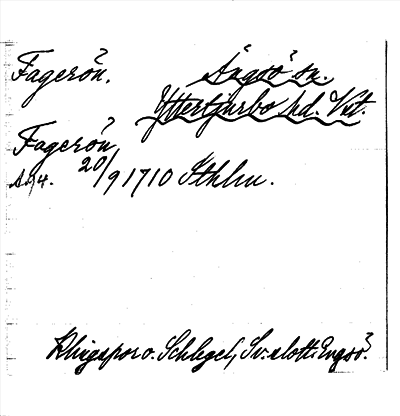 Fagerön. Ängsö sn.
Yttertjurbo hd. Vst.
Fagerön,
20/9 1710 Sthlm.
Klingspor o. Schlegel, Sv. slott: Engsö.